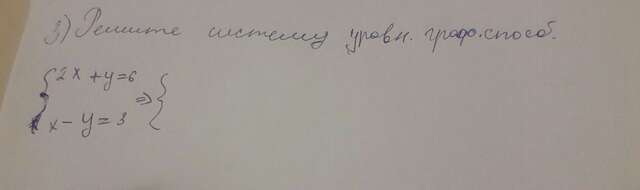 3) Решите систему уравн. граф. способ.
{ 2x + y = 6
=> {
x - y = 3